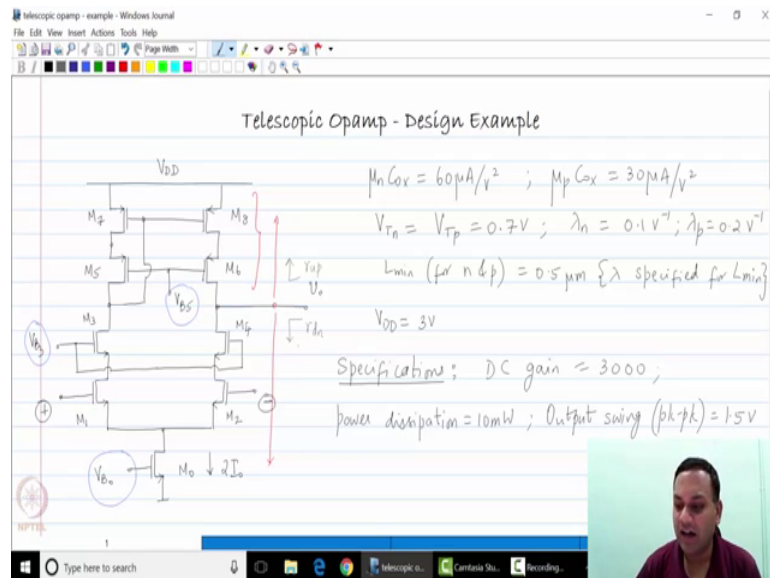 telescopic opamp - example - Windows Journal
File Edit View Insert Actions Tools Help
Page Width
B I
Telescopic Opamp - Design Example
VDD
M7
M8
M5
M6
VB5
rup
Vo
rdn
M3
M4
VB3
+
M1
M2
-
VB0
M0 ↓ 2I0
μnCox = 60μA/V² ; μpCox = 30μA/V²
VTn = VTp = 0.7V ; λn = 0.1 V⁻¹ ; λp = 0.2 V⁻¹
Lmin (for n & p) = 0.5 μm {λ specified for Lmin}
VDD = 3V
Specifications: DC gain = 3000 ;
power dissipation = 10mW ; Output swing (pk-pk) = 1.5V
NPTEL
1
Type here to search
telescopic o...
Camtasia Stu...
Recording...